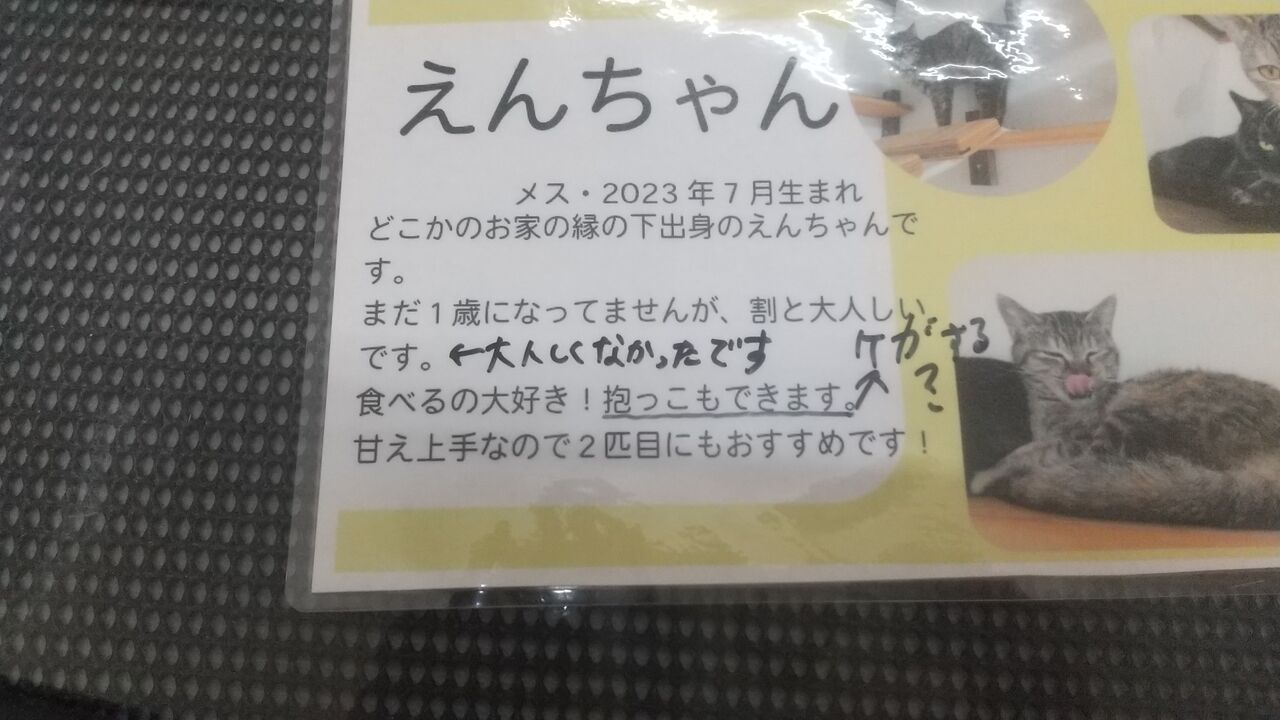 えんちゃん
メス・2023年7月生まれ
どこかのお家の縁の下出身のえんちゃんで
す。
まだ1歳になってませんが、割と大人しい
です。←大人しくなかったです
ケガする
?
↑
食べるの大好き!抱っこもできます。
甘え上手なので2匹目にもおすすめです!